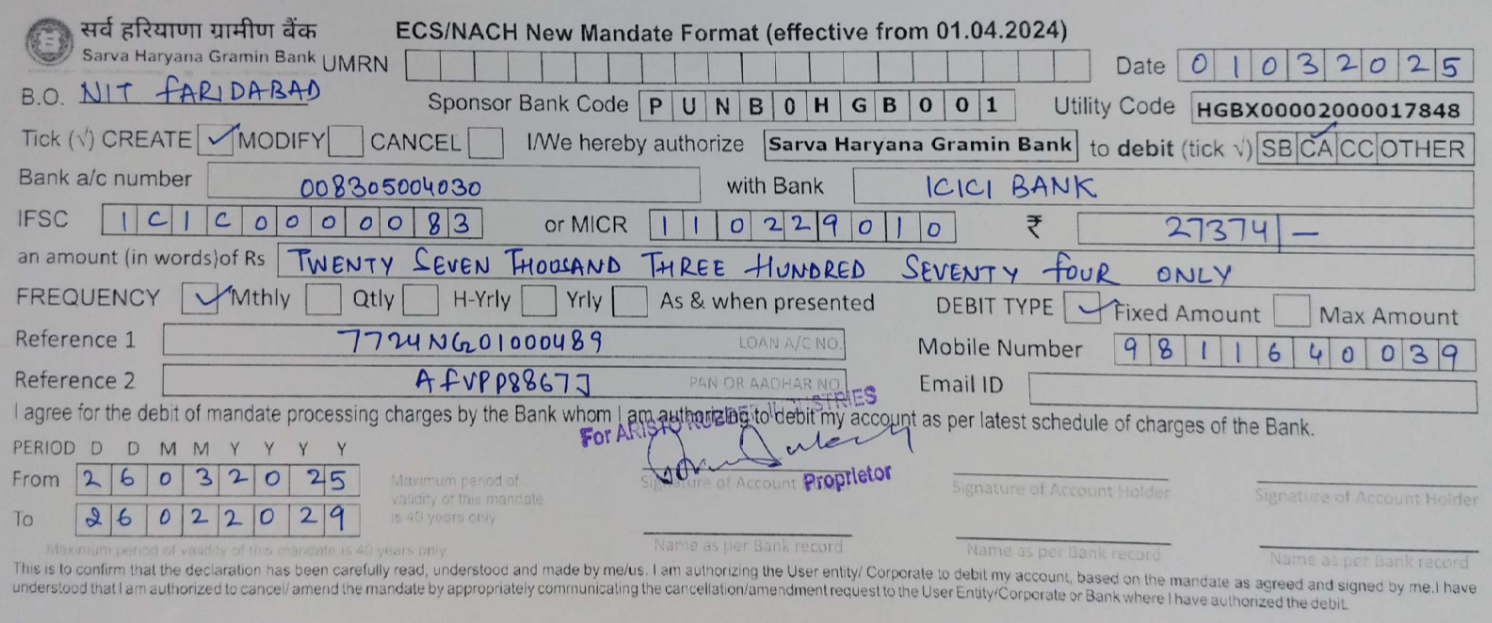 सर्व हरियाणा ग्रामीण बैंक
Sarva Haryana Gramin Bank
ECS/NACH New Mandate Format (effective from 01.04.2024)
UMRN Date 01032025
B.O. NIT FARIDABAD Sponsor Bank Code PUNB0HGB001 Utility Code HGBX00002000017848
Tick (√) CREATE ✓ MODIFY CANCEL I/We hereby authorize Sarva Haryana Gramin Bank to debit (tick √) SB CA ✓ CC OTHER
Bank a/c number 008305004030 with Bank ICICI BANK
IFSC ICIC0000083 or MICR 110229010 ₹ 27374/—
an amount (in words)of Rs TWENTY SEVEN THOUSAND THREE HUNDRED SEVENTY FOUR ONLY
FREQUENCY ✓ Mthly Qtly H-Yrly Yrly As & when presented DEBIT TYPE ✓ Fixed Amount Max Amount
Reference 1 7724NG01000489 LOAN A/C NO. Mobile Number 9811640039
Reference 2 AFVPP8867J PAN OR AADHAR NO. Email ID
I agree for the debit of mandate processing charges by the Bank whom I am authorizing to debit my account as per latest schedule of charges of the Bank.
For ARISTO RUBBER INDUSTRIES
PERIOD D D M M Y Y Y Y
From 26032025
To 26022029
Maximum period of
validity of this mandate
is 40 years only
Proprietor
Signature of Account Signature of Account Holder Signature of Account Holder
Name as per Bank record Name as per Bank record Name as per Bank record
Maximum period of validity of this mandate is 40 years only.
This is to confirm that the declaration has been carefully read, understood and made by me/us. I am authorizing the User entity/ Corporate to debit my account, based on the mandate as agreed and signed by me.I have
understood that I am authorized to cancel/ amend the mandate by appropriately communicating the cancellation/amendment request to the User Entity/Corporate or Bank where I have authorized the debit.